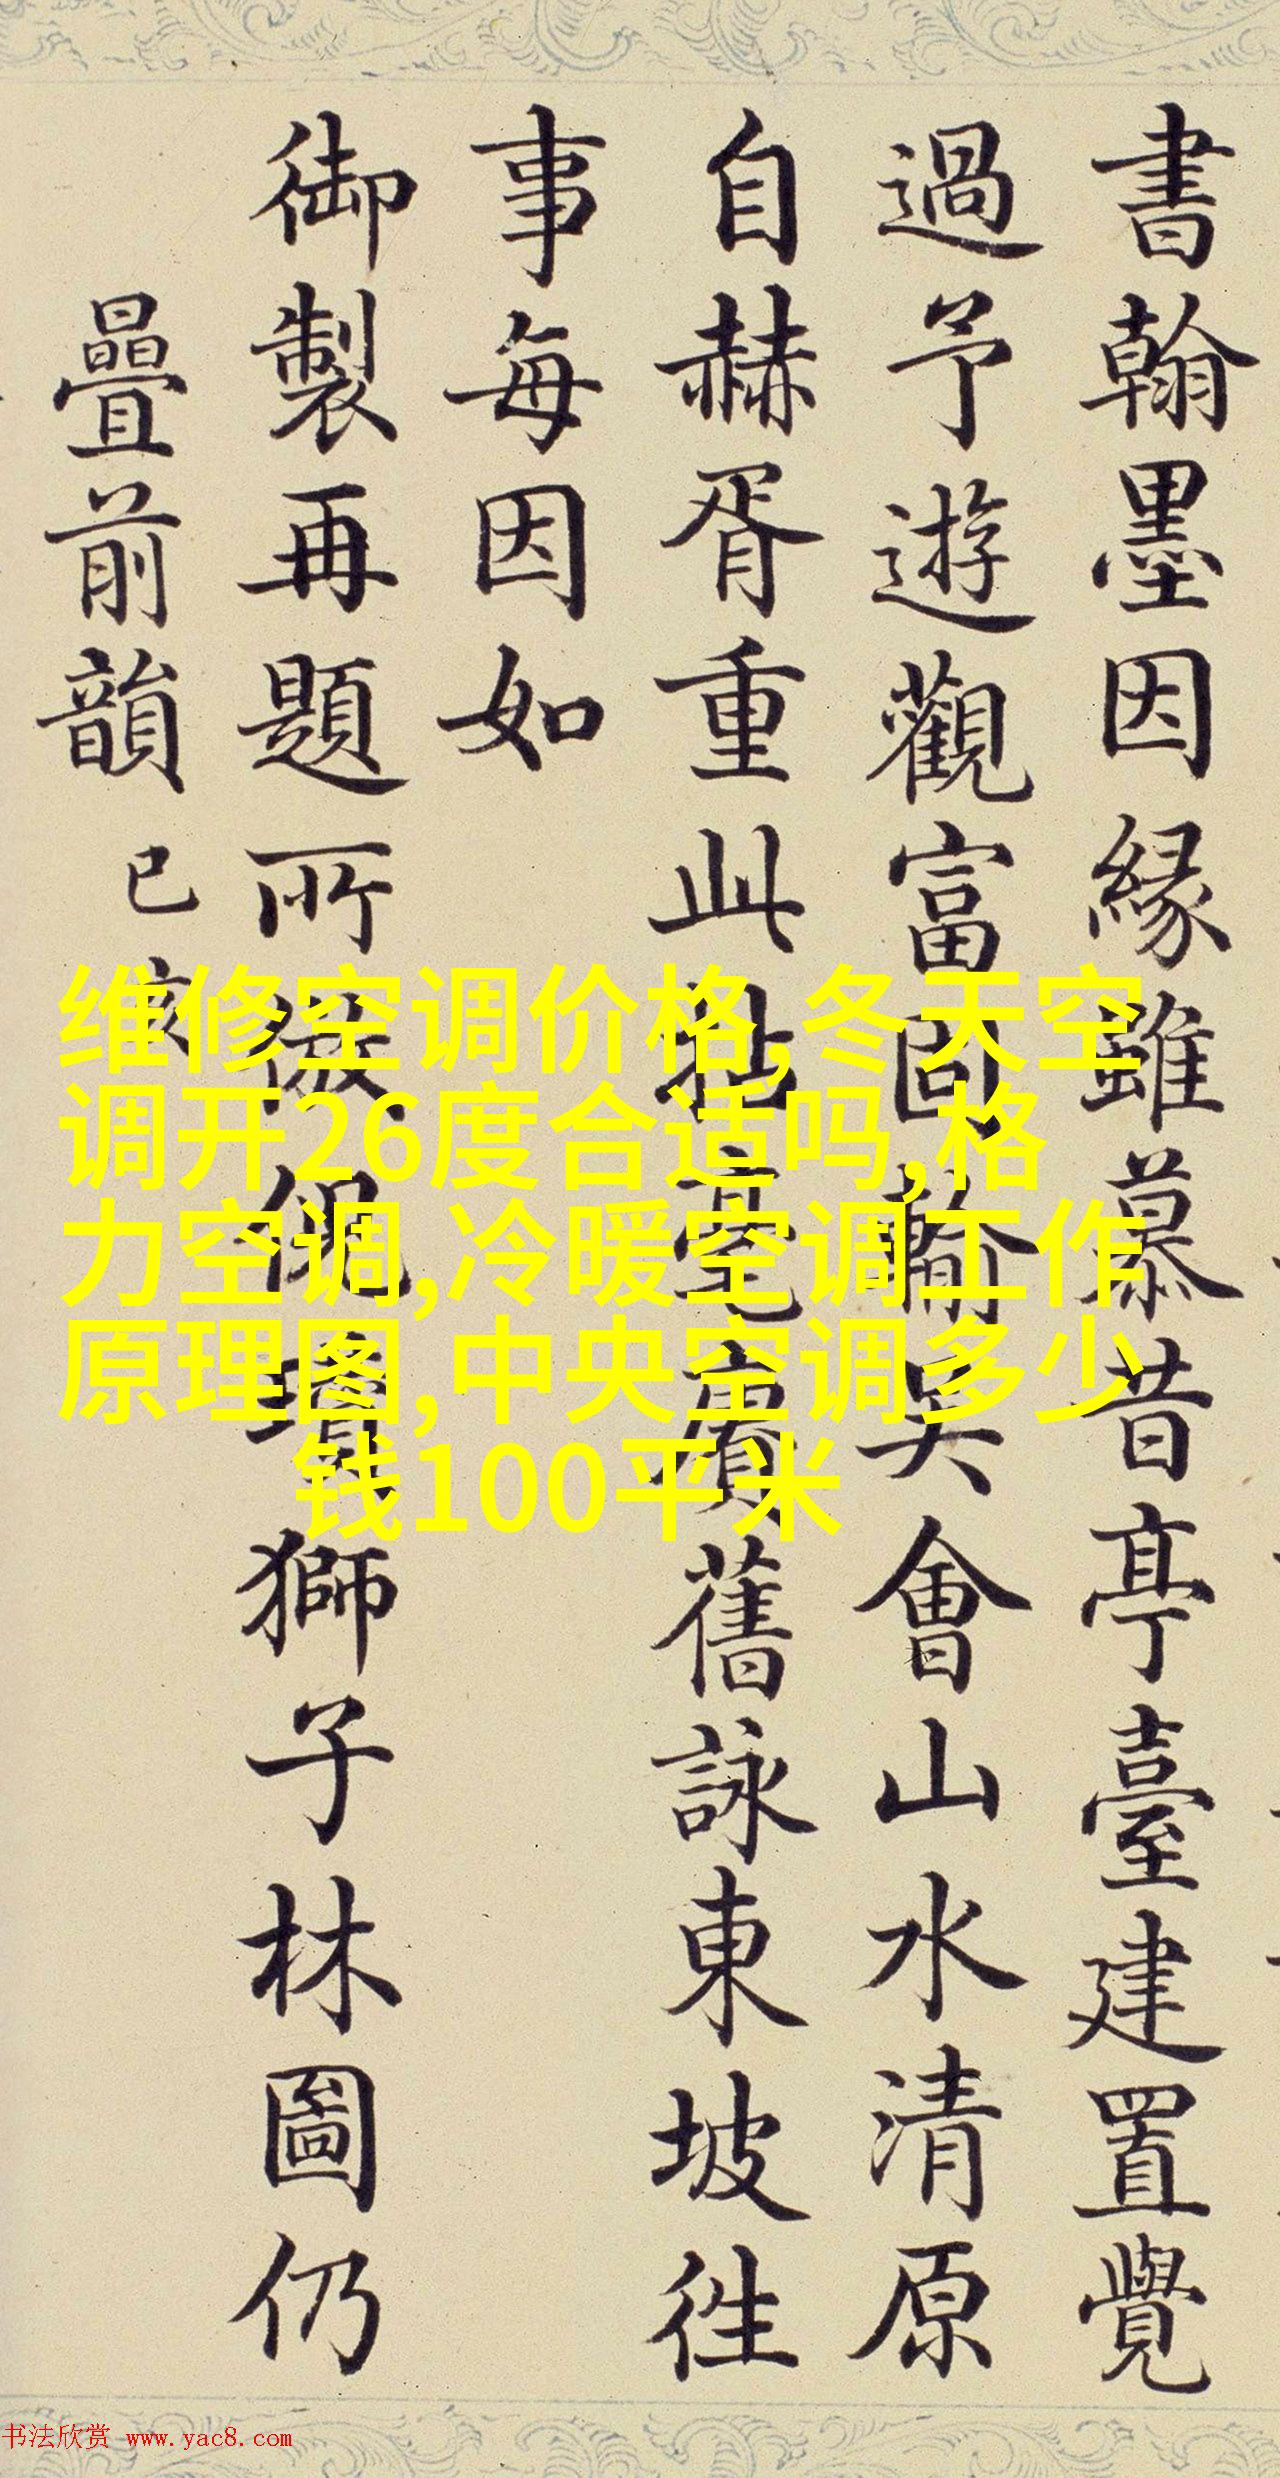 書翰墨因緣雖慕昔亭臺建置覺
過予遊觀富固輸吳會山水清原
自赫胥重此拈毫賡舊詠東坡徃
事每因如
御製再題所倣倪瓚獅子林圖仍
疊前韻已亥
维修空调价格,冬天空
调开26度合适吗,格
力空调,冷暖空调工作
原理图,中央空调多少
钱100平米
书法欣赏 www.yac8.com